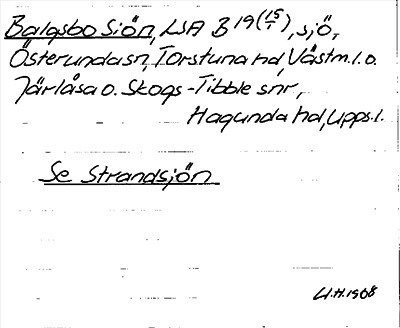 Balgsbo Siön, LSA B 19 (15/1), sjö,
Österunda sn, Torstuna hd, Västm. l. o.
Järlåsa o. Skogs-Tibble snr,
Hagunda hd, Upps. l.
Se Strandsjön
U.H. 1968